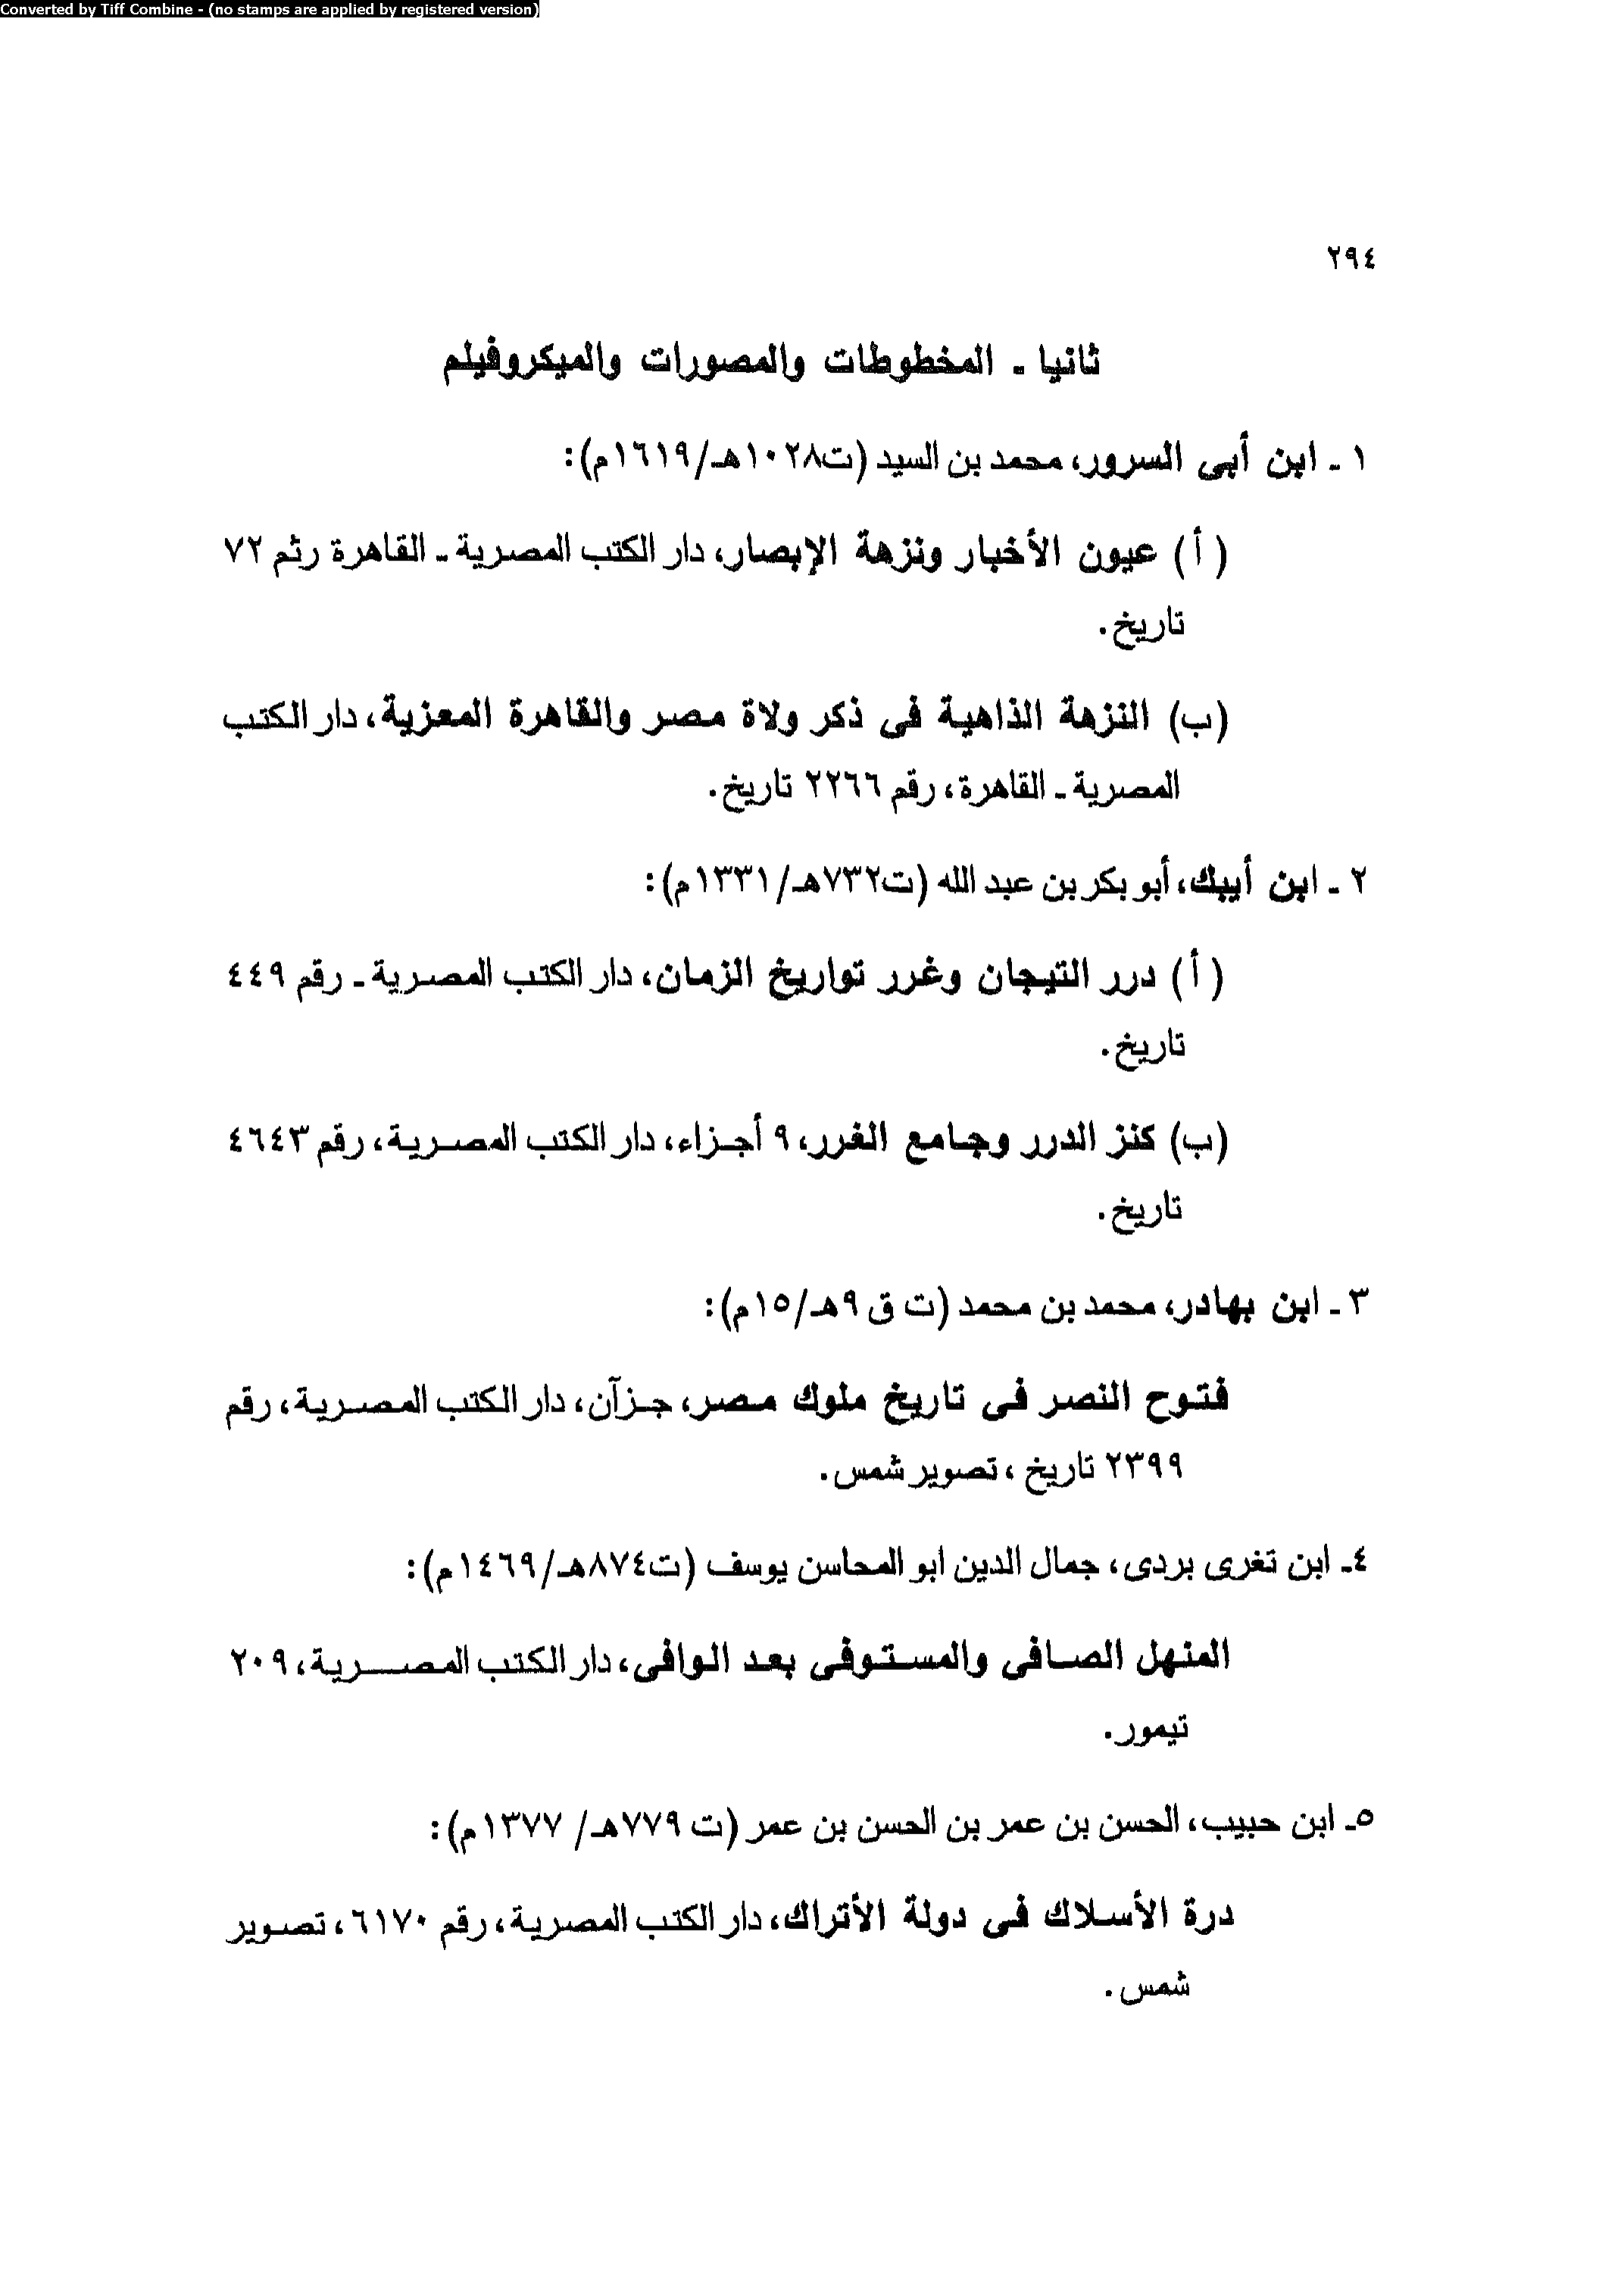 Converted by Tiff Combine - (no stamps are applied by registered version)
٢٩٤
ثانيا - المخطوطات والمصورات والميكروفيلم
١ - ابن أبى السرور، محمد بن السيد (ت١٠٢٨هـ/١٦١٩م):
( أ ) عيون الأخبار ونزهة الإبصار، دار الكتب المصرية - القاهرة رثم ٧٢
تاريخ.
(ب) النزهة الذاهية فى ذكر ولاة مصر والقاهرة المعزية، دار الكتب
المصرية - القاهرة، رقم ٢٢٦٦ تاريخ.
٢ - ابن أيبك، أبو بكر بن عبد الله (ت٧٣٢هـ/١٣٣١م):
( أ ) درر التيجان وغرر تواريخ الزمان، دار الكتب المصرية - رقم ٤٤٩
تاريخ.
(ب) كنز الدرر وجامع الغرر، ٩ أجزاء، دار الكتب المصرية، رقم ٤٦٤٣
تاريخ.
٣ - ابن بهادر، محمد بن محمد (ت ق ٩هـ/١٥م):
فتوح النصر فى تاريخ ملوك مصر، جزآن، دار الكتب المصرية، رقم
٢٣٩٩ تاريخ ، تصوير شمس.
٤- ابن تغرى بردى، جمال الدين ابو المحاسن يوسف (ت٨٧٤هـ/١٤٦٩م):
المنهل الصافى والمستوفى بعد الوافى، دار الكتب المصرية، ٢٠٩
تيمور.
٥- ابن حبيب، الحسن بن عمر بن الحسن بن عمر (ت ٧٧٩هـ/ ١٣٧٧م):
درة الأسلاك فى دولة الأتراك، دار الكتب المصرية، رقم ٦١٧٠، تصوير
شمس.